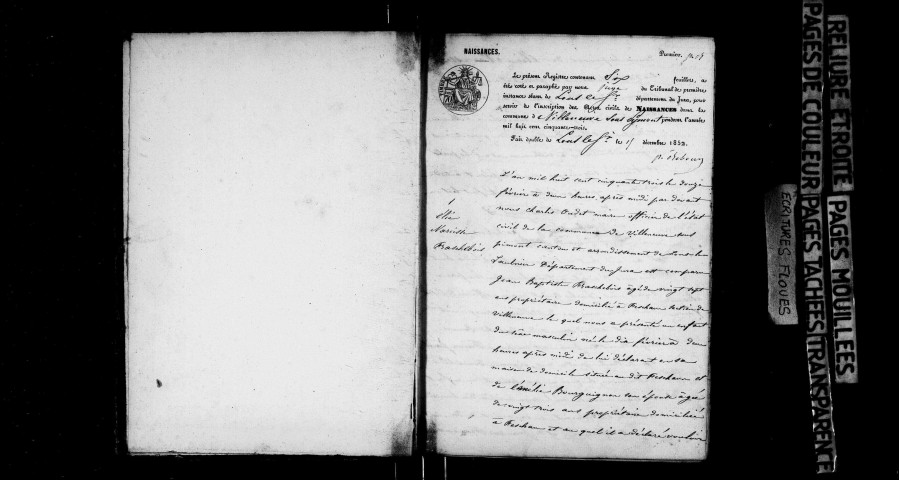 NAISSANCES.
Premier
Le présent Registre contenant Six feuillets, a
été coté et paraphé par nous juge du Tribunal de première
instance séant de Lons le S.r département du Jura, pour
servir de l'inscription des Actes civils de NAISSANCES dans la
commune de Villeneuve sous Pymont pendant l'année
mil huit cent cinquante-trois.
Fait double de Lons le S.r le 15 décembre 1852.
L'an mil huit cent cinquante trois le douze
février à deux heures après midi par devant
nous Charles Oudet maire officier de l'état
civil de la commune de Villeneuve sous
pimont canton et arrondissement de Lons le
Saunier Département du Jura est comparu
Jean Baptiste Braschebois âgé de vingt sept
ans propriétaire domicilié à section de
Villeneuve le quel nous a présenté un enfant
du sexe masculin né le dix février à deux
heures après midi de lui déclarant en sa
maison de domicile située au dit et
de Emélie Bourguignon son épouse âgée
de vingt trois ans propriétaire domiciliée
à et au quel il a déclaré vouloir
Narcisse
Braschebois
RELIURE ETROITE PAGES MOUILLEES
PAGES DE COULEUR PAGES TACHEES TRANSPARENCE
ECRITURES FLOUES